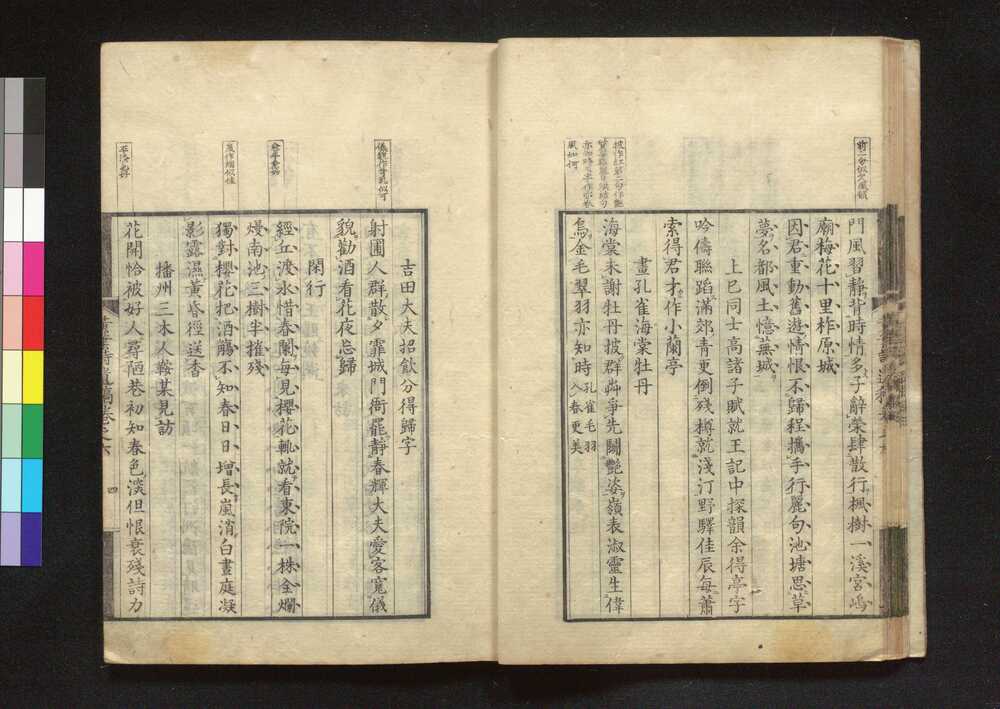 門風習靜背時情多子辭榮肆散行楓樹一溪宮嶋
廟梅花十里柞原城
因君重動舊遊情恨不歸程攜手行麗句池塘思草
夢名都風土憶蕪城
上巳同士高諸子賦就王記中探韻余得亭字
吟儔聯蹈滿郊青更倒殘樽就淺汀野驛佳辰每蕭
索得君才作小蘭亭
畫孔雀海棠牡丹
海棠未謝牡丹披群艸爭先鬪艷姿嶺表淑靈生偉
鳥金毛翠羽亦知時
孔雀毛羽
入春更美
吉田大夫招飲分得歸字
射圃人群散夕霏城門衙罷靜春輝大夫愛客寬儀
貌勸酒看花夜忘歸
閑行
經丘渡水惜春闌每見櫻花輙就看東院一株全爛
熳南池三樹半摧殘
獨對櫻花把酒觴不知春日日增長嵐消白晝庭凝
影露濕黃昏徑送香
播州三木人鞍某見訪
花開恰被好人尋陋巷初知春色淡但恨衰殘詩力
四